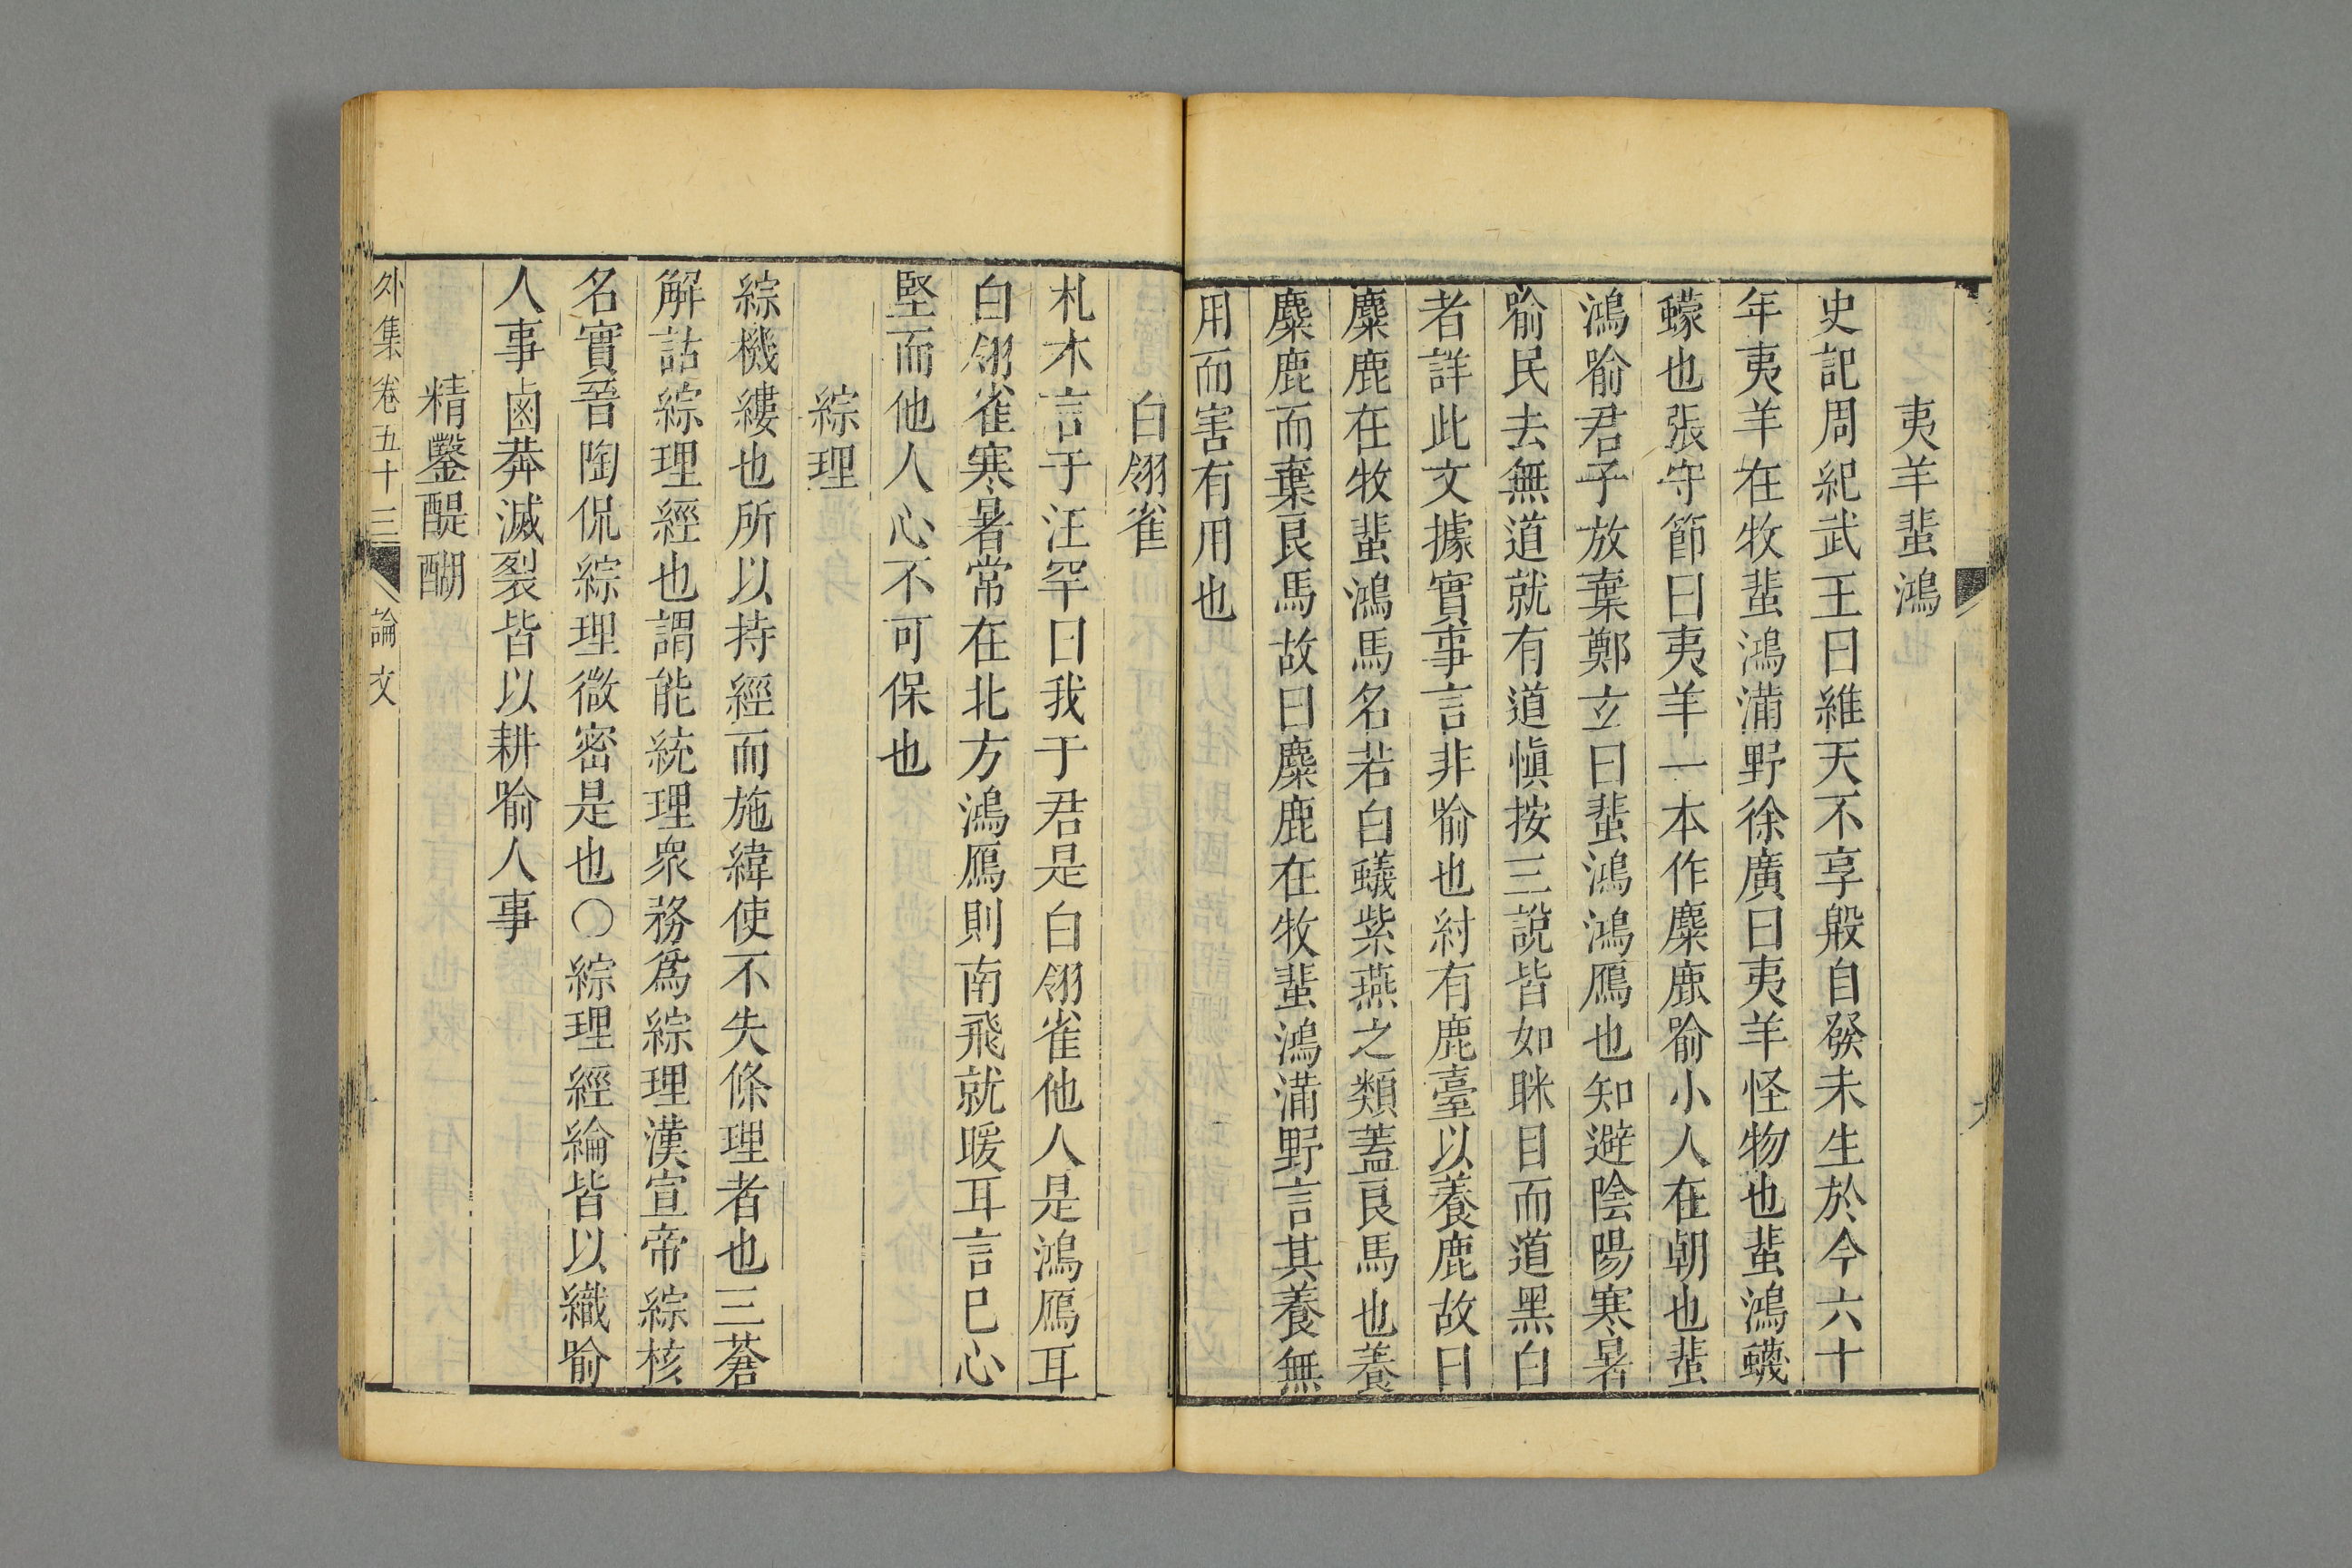 夷羊蜚鴻
史記周紀武王曰維天不享殷自發未生於今六十
年夷羊在牧蜚鴻滿野徐廣曰夷羊怪物也蜚鴻蠛
蠓也張守節曰夷羊一本作麋鹿喻小人在朝也蜚
鴻喻君子放棄鄭玄曰蜚鴻鴻鴈也知避陰陽寒暑
喻民去無道就有道愼按三說皆如眯目而道黑白
者詳此文據實事言非喻也紂有鹿臺以養鹿故曰
麋鹿在牧蜚鴻馬名若白蟻紫燕之類蓋良馬也養
麋鹿而棄良馬故曰麋鹿在牧蜚鴻滿野言其養無
用而害有用也
白翎雀
札木言于汪罕曰我于君是白翎雀他人是鴻鴈耳
白翎雀寒暑常在北方鴻鴈則南飛就暖耳言已心
堅而他人心不可保也
綜理
綜機縷也所以持經而施緯使不失條理者也三蒼
解詁綜理經也謂能統理衆務爲綜理漢宣帝綜核
名實晉陶侃綜理微密是也○綜理經綸皆以織喻
人事鹵莽滅裂皆以耕喻人事
精鑿醍醐
外集卷五十三 論文